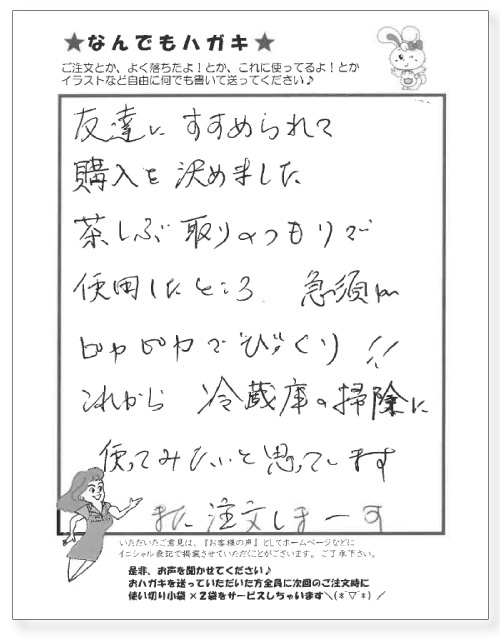 ★なんでもハガキ★
ご注文とか、よく落ちたよ！とか、これに使ってるよ！とか
イラストなど自由に何でも書いて送ってください♪
友達に すすめられて
購入を 決めました
茶しぶ 取りのつもりで
使用したところ 急須が
ピカピカでびっくり!!
これから 冷蔵庫の掃除に
使ってみたいと思っています
また 注文しまーす
いただいたご意見は、『お客様の声』としてホームページなどに
イニシャル表記で掲載させていただくことがございます。ご了承下さい。
是非、お声を聞かせてください♪
おハガキを送っていただいた方全員に次回のご注文時に
使い切り小袋×２袋をサービスしちゃいます＼(*´▽`*)／